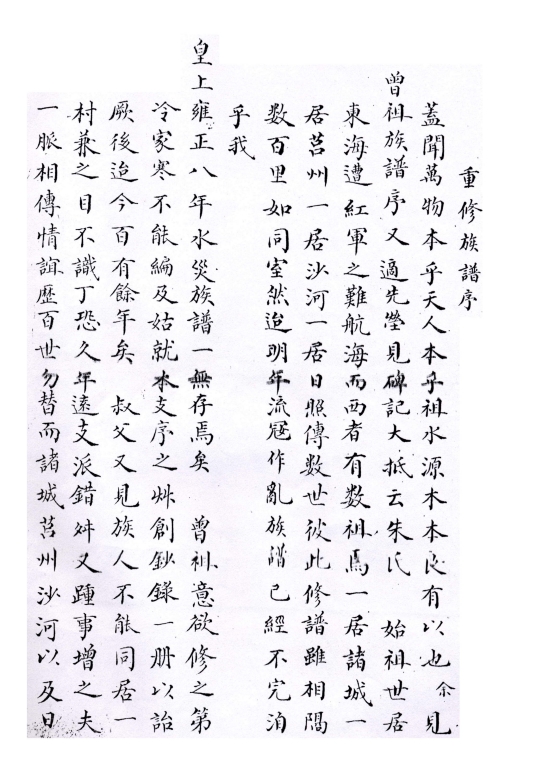 重修族譜序
蓋聞萬物本乎天人本乎祖水源木本良有以也余見
曾祖族譜序又適先塋見碑記大抵云朱氏 始祖世居
東海遭紅軍之難航海而西者有数祖焉一居諸城一
居莒州一居沙河一居日照傳数世彼此修譜雖相隔
数百里如同室然迨明年流冦作亂族譜已經不完洎
乎我
皇上雍正八年水災族譜一無存焉矣 曾祖意欲修之第
冷家寒不能編及姑就本支序之艸創鈔錄一册以詒
厥後迨今百有餘年矣 叔父又見族人不能同居一
村兼之目不識丁恐久年遠支派錯舛又踵事增之夫
一脈相傳情誼歷百世勿替而諸城莒州沙河以及日